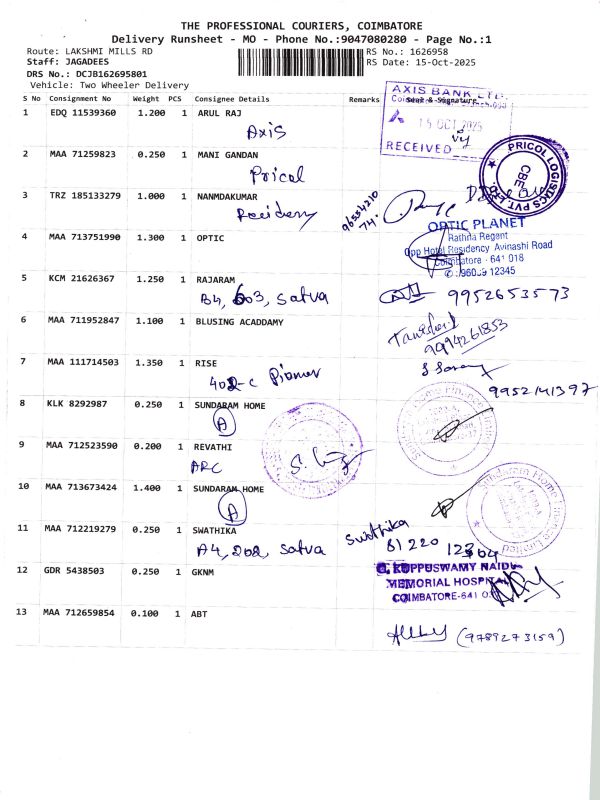 THE PROFESSIONAL COURIERS, COIMBATORE
Delivery Runsheet - MO - Phone No.:9047080280 - Page No.:1
Route: LAKSHMI MILLS RD
RS No.: 1626958
Staff: JAGADEES
RS Date: 15-Oct-2025
DRS No.: DCJB162695801
Vehicle: Two Wheeler Delivery
S No Consignment No Weight PCS Consignee Details Remarks Seal & Signature
AXIS BANK LTD.
15 OCT 2025
RECEIVED
1 EDQ 11539360 1.200 1 ARUL RAJ
Axis
2 MAA 71259823 0.250 1 MANI GANDAN
Pricol
PRICOL LOGISTICS PVT. LTD.
CBE
3 TRZ 185133279 1.000 1 NANMDAKUMAR
Residency
4 MAA 713751990 1.300 1 OPTIC
OPTIC PLANET
Rathna Regent
Opp Hotel Residency Avinashi Road
Coimbatore - 641 018
12345
5 KCM 21626367 1.250 1 RAJARAM
B4, 603, Satva
9952653573
6 MAA 711952847 1.100 1 BLUSING ACADDAMY
9994261853
7 MAA 111714503 1.350 1 RISE
402-C Pioneer
9952141397
8 KLK 8292987 0.250 1 SUNDARAM HOME
A
9 MAA 712523590 0.200 1 REVATHI
ARC
10 MAA 713673424 1.400 1 SUNDARAM HOME
A
Sundaram Home Finance Limited
11 MAA 712219279 0.250 1 SWATHIKA
A4, 202, Satva
Swathika
81220 12304
12 GDR 5438503 0.250 1 GKNM
G. KUPPUSWAMY NAIDU
MEMORIAL HOSPITAL
COIMBATORE-641 0
13 MAA 712659854 0.100 1 ABT
(9789273159)